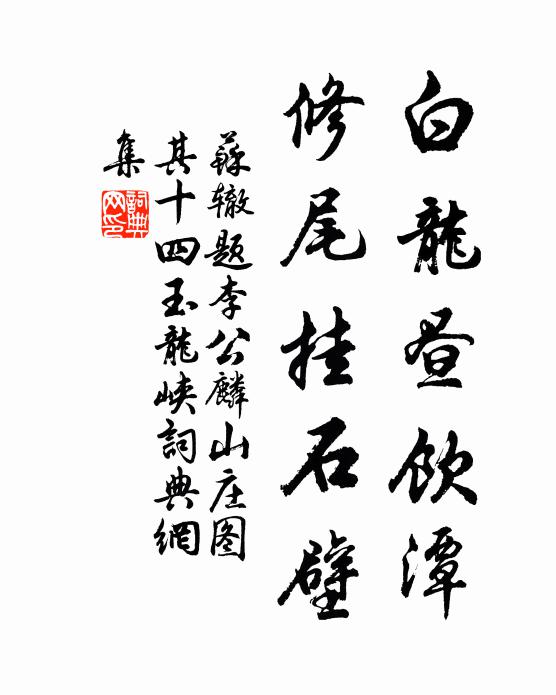 白龍昼飲潭
修尾挂石壁
蘇辙题李公麟山庄图
其十四玉龍峡詞典網
集
詞典网印